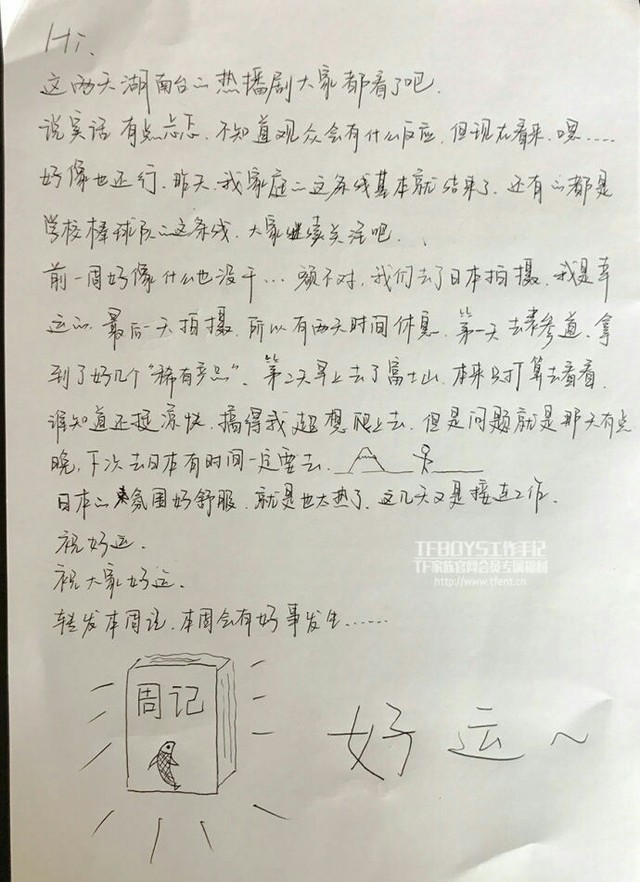 Hi.
这两天湖南台的热播剧大家都看了吧.
说实话 有点忐忑. 不知道观众会有什么反应. 但现在看来. 嗯.....
好像也还行. 昨天. 我家庭的这条线基本就结束了. 还有的都是
学校棒球队的这条线. 大家继续关注吧.
前一周好像什么也没干... 额不对, 我们去了日本拍摄. 我是幸
运的. 最后一天拍摄. 所以有两天时间休息. 第一天去表参道. 拿
到了好几个“稀有产品”. 第2天早上去了富士山. 本来只打算去看看.
谁知道还挺凉快. 搞得我超想爬上去. 但是问题就是那天有点
晚. 下次去日本有时间一定要去.
日本的氛围好舒服. 就是也太热了. 这几天又是接连工作.
祝好运.
祝大家好运.
转发本周记. 本周会有好事发生......
周记
好运~
TFBOYS工作手记
TF家族官网会员专属福利
http://www.tfent.cn